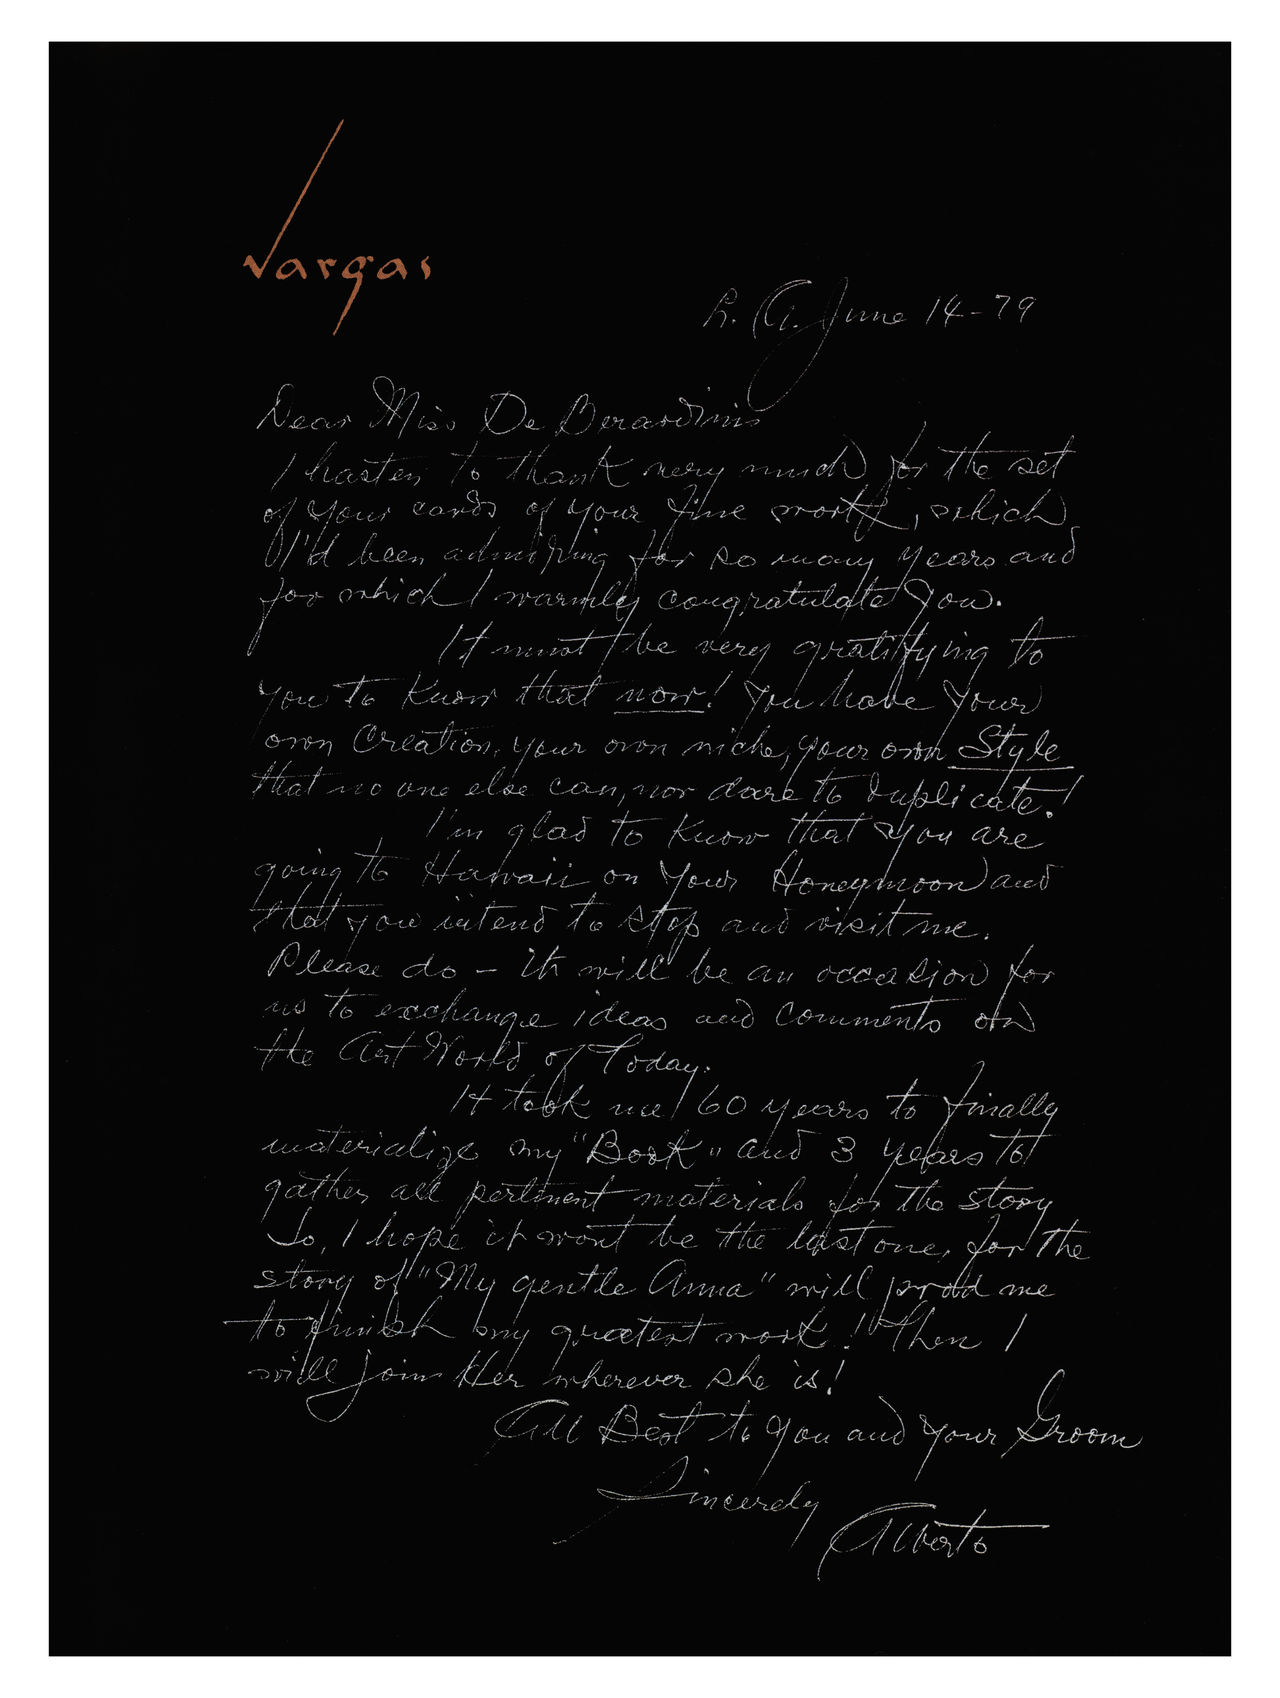 Vargas
L. A. June 14-79
Dear Miss De Berardinis
I hasten to thank very much for the set
of your cards of your fine work, which
I'd been admiring for so many years and
for which I warmly congratulate you.
It must be very gratifying to
you to know that now! you have your
own Creation, your own niche, your own Style
that no one else can, nor dare to duplicate!
I'm glad to know that you are
going to Hawaii on your Honeymoon and
that you intend to stop and visit me.
Please do – it will be an occasion for
us to exchange ideas and comments on
the Art World of Today.
It took me 60 years to finally
materialize my "Book" and 3 years to
gather all pertinent materials for the story
So, I hope it wont be the last one, for the
story of "My gentle Anna" will prod me
to finish my greatest work! Then I
will join Her wherever she is!
All Best to you and your Groom
Sincerely
Alberto